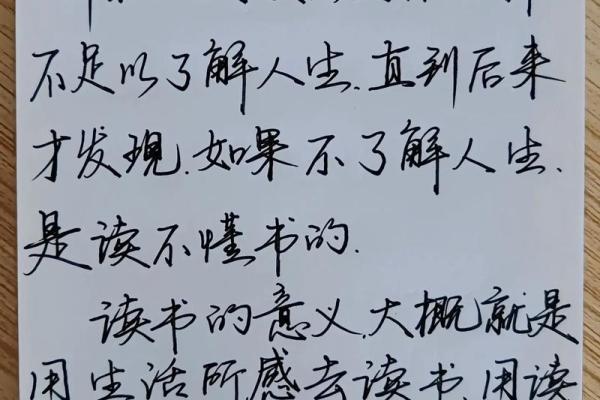 不足以了解人生.直到后来
才发现.如果不了解人生.
是读不懂书的.
读书的意义.大概就是
用生活所感去读书.用读